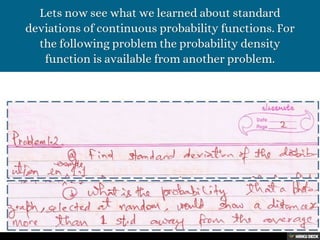 Lets now see what we learned about standard
deviations of continuous probability functions. For
the following problem the probability density
function is available from another problem.
classmate
Date
Page 2
Problem 1.2
(a) Find standard deviation of the distrib-
ution in example 1.1
(b) What is the probability that a photo-
graph, selected at random, would show a distance
more than 1 std away from the average